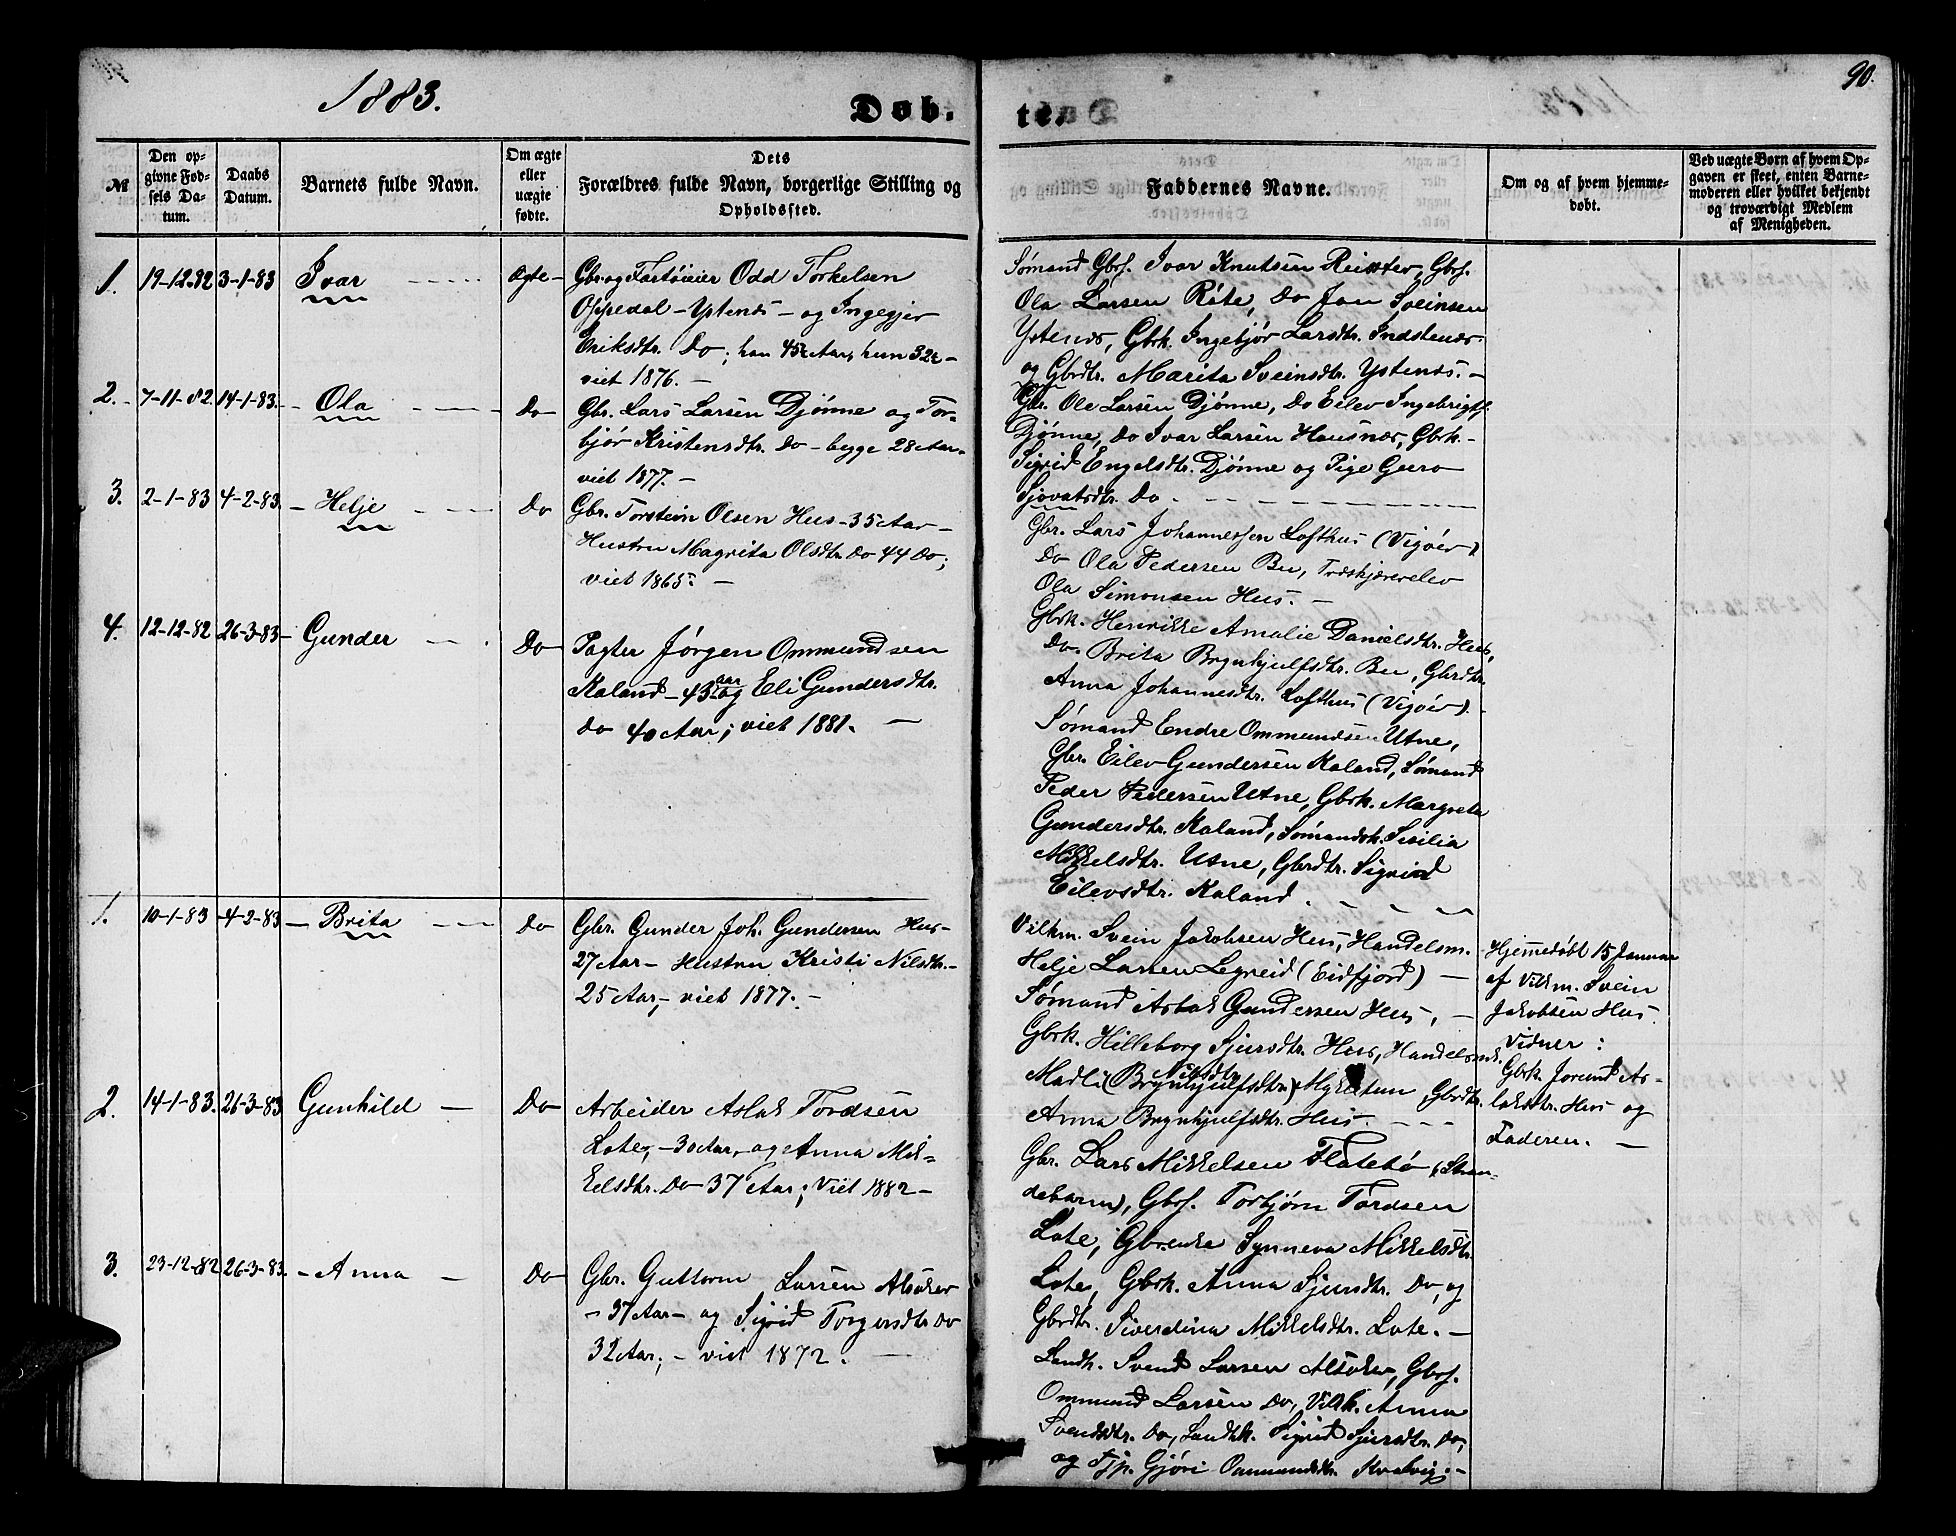 1883.
Døb.
te.
90.
№
Den op-
givne Fød-
sels Da-
tum.
Daabs
Datum.
Barnets fulde Navn.
Om ægte
eller
uægte
fødte.
Dets
Forældres fulde Navn, borgerlige Stilling og
Opholdssted.
Faddernes Navne.
Om og af hvem hjemme-
døbt.
Ved uægte Børn af hvem Op-
gaven er skeet, enten Barne-
moderen eller hvilket bekjendt
og troværdigt Medlem
af Menigheden.
1. 19-12-82 3-1-83 Ivar Ægte
Gbr. og Fartøieier Odd Torkelsen
Oppedal - Ystenæs - og Ingegjer
Eriksdtr. Do; han 45 Aar, hun 32 -
viet 1876. -
Sømand Gbrs. Ivar Knutsen Reisæter, Gbrs.
Ola Larsen Røte, Do Jon Sveinsen
Ystenæs, Gbrk. Ingebjør Larsdtr. Indstenæs
og Gbrdtr. Marita Sveinsdtr. Ystenæs. -
2. 7-11-82. 14-1-83. - Ola - Do
Gbr. Lars Larsen Djønne og Tor-
bjør Kristensdtr. Do - begge 28 Aar -
viet 1877. -
Gbr. Ole Larsen Djønne, Do Eilev Ingebrigts.
Djønne, Do Ivar Larsen Hausnæs, Gbrk. -
Sigrid Engelsdtr. Djønne og Pige Guro
Sjovatsdtr. Do. -
3. 2-1-83 4-2-83. - Helje - Do
Gbr. Torstein Olsen Hus - 35 Aar -
Hustru Magrita Olsdtr. Do 44 Do;
viet 1865. -
Gbr. Lars Johannessen Lofthus (Vigøer)
Do Ola Pedersen Bu, Træskjærerelev
Ola Simonsen Hus. -
Gbrk. Henrikke Amalie Danielsdtr. Hus,
Do. Brita Brynhjulfsdtr. Bu, Gbrdtr.
Anna Johannesdtr. Lofthus (Vigøer). -
4. 12-12-82 26-3-83 - Gunder - Do
Pagter Jørgen Ommundsen
Kaland - 43 aar og Eli Gundersdtr.
Do 40 Aar; viet 1881. -
Sømand Endre Ommundsen Utne,
Gbr. Eilev Gundersen Kaland, Sømand
Peder Pedersen Utne, Gbrk. Margreta
Gundersdtr. Kaland, Sømandsk. Sisilia
Mikkelsdtr. Utne, Gbrdtr. Sigrid
Eilevsdtr. Kaland.
1. 10-1-83 4-2-83 - Brita - Do
Gbr. Gunder Joh. Gundersen Hus -
27 Aar - Hustru Kristi Nilsdtr. -
25 Aar, - viet 1877. -
Vilkm. Svein Jakobsen Hus, Handelsm.
Helje Larsen Legreid (Eidfjord) -
Sømand Aslak Gundersen Hus, -
Gbrk. Hilleborg Sjursdtr. Hus, Handelsmk.
Nilsdtr.
Madli (Brynhjulfsdtr.) Mykletun, Gbrdtr.
Anna Brynhjulfsdtr. Hus. - - -
Hjemmedøbt 15 Januar
af Vilkm. Svein
Jakobsen Hus.
Vidner:
Gbrk. Jorund As-
laksdtr. Hus og
Faderen. -
2. 14-1-83. 26-3-83 Gunhild - Do
Arbeider Aslak Tordsen
Lote, - 30 Aar, og Anna Mik-
kelsdtr. Do 37 Aar; Viet 1882 -
Gbr. Lars Mikkelsen Flatebø (Stran-
debarm), Gbrs. Torbjørn Tordsen
Lote, Gbrenke Synneva Mikkelsdtr.
Lote, Gbrk. Anna Sjursdtr. Do, og
Gbrdtr. Siverdina Mikkelsdtr. Lote. -
3. 23-12-82 26-3-83. - Anna - Do
Gbr. Guttorm Larsen Alsaker
- 37 Aar - og Sigrid Torgersdtr. Do
32 Aar; - viet 1872. -
Landh. Svend Larsen Alsaker, Gbrs.
Ommund Larsen Do, Vilk. Anna
Svendsdtr. Do, Landhk. Sigrid Sjursdtr. Do,
og Tjp. Gjøri Ommundsdtr. Kvalvig. -